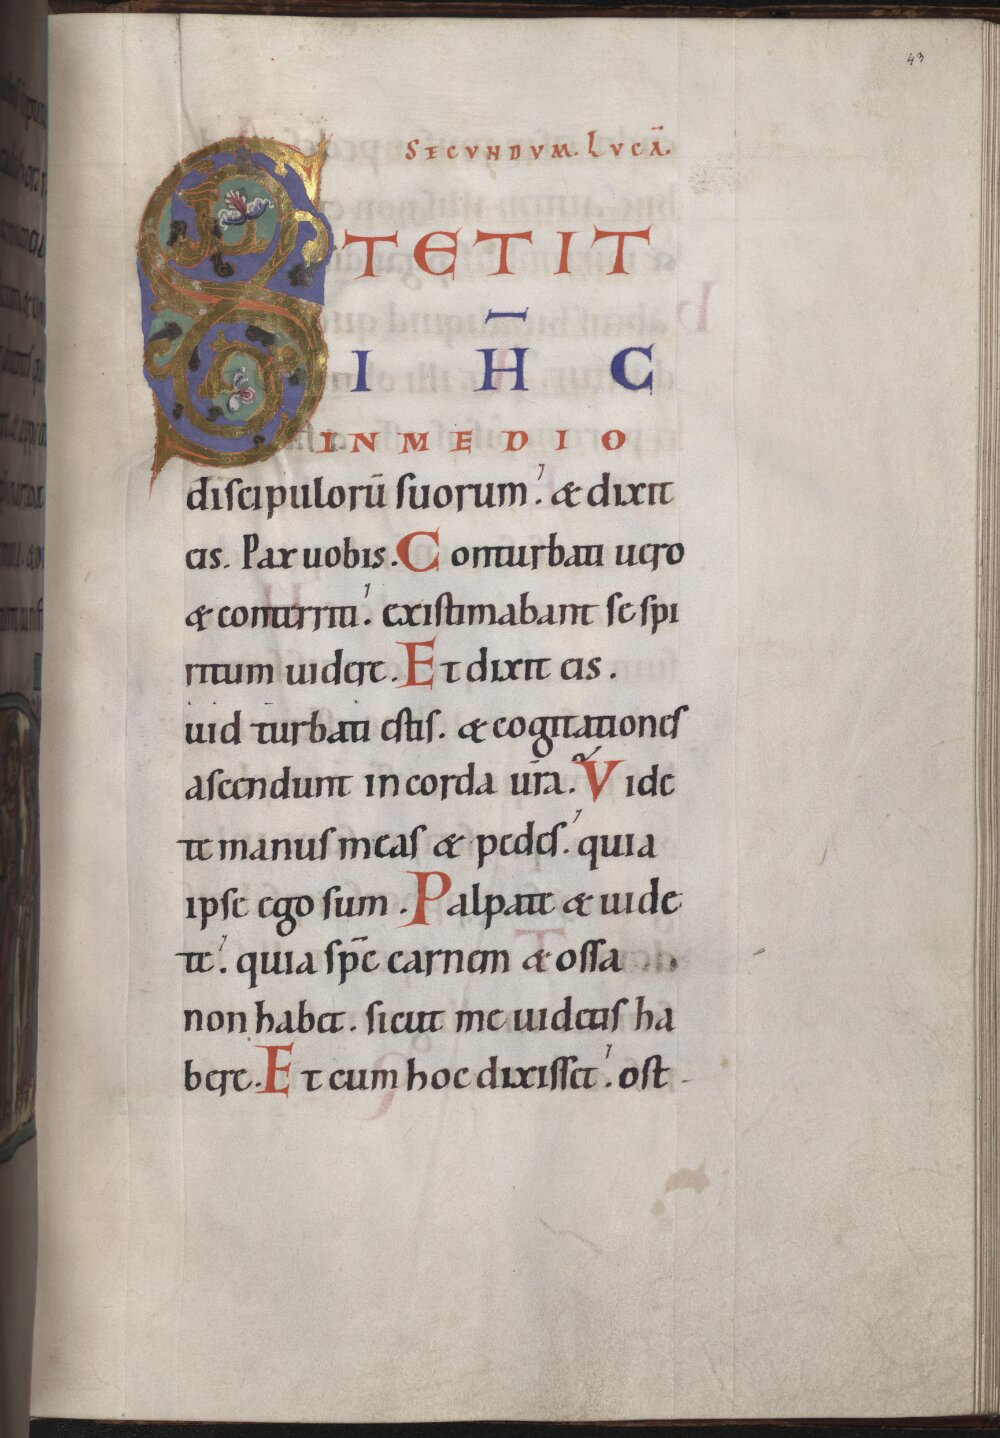 43
SECUNDUM. LUCĀ.
STETIT
IHC̅
IN MEDIO
diſcipulorū ſuorum. & dixit
eis. Pax uobis. Conturbati uero
& conterriti. exiſtimabant ſe ſpi
ritum uidere. Et dixit eis.
uid turbati eſtiſ. & cogitationeſ
aſcendunt in corda ur̄a. Vide
te manuſ meaſ & pedeſ. quia
ipſe ego ſum. Palpate & uide
te. quia ſpc̄ carnem & oſſa
non habet. ſicut me uidetiſ ha
bere. Et cum hoc dixiſſet. oſt